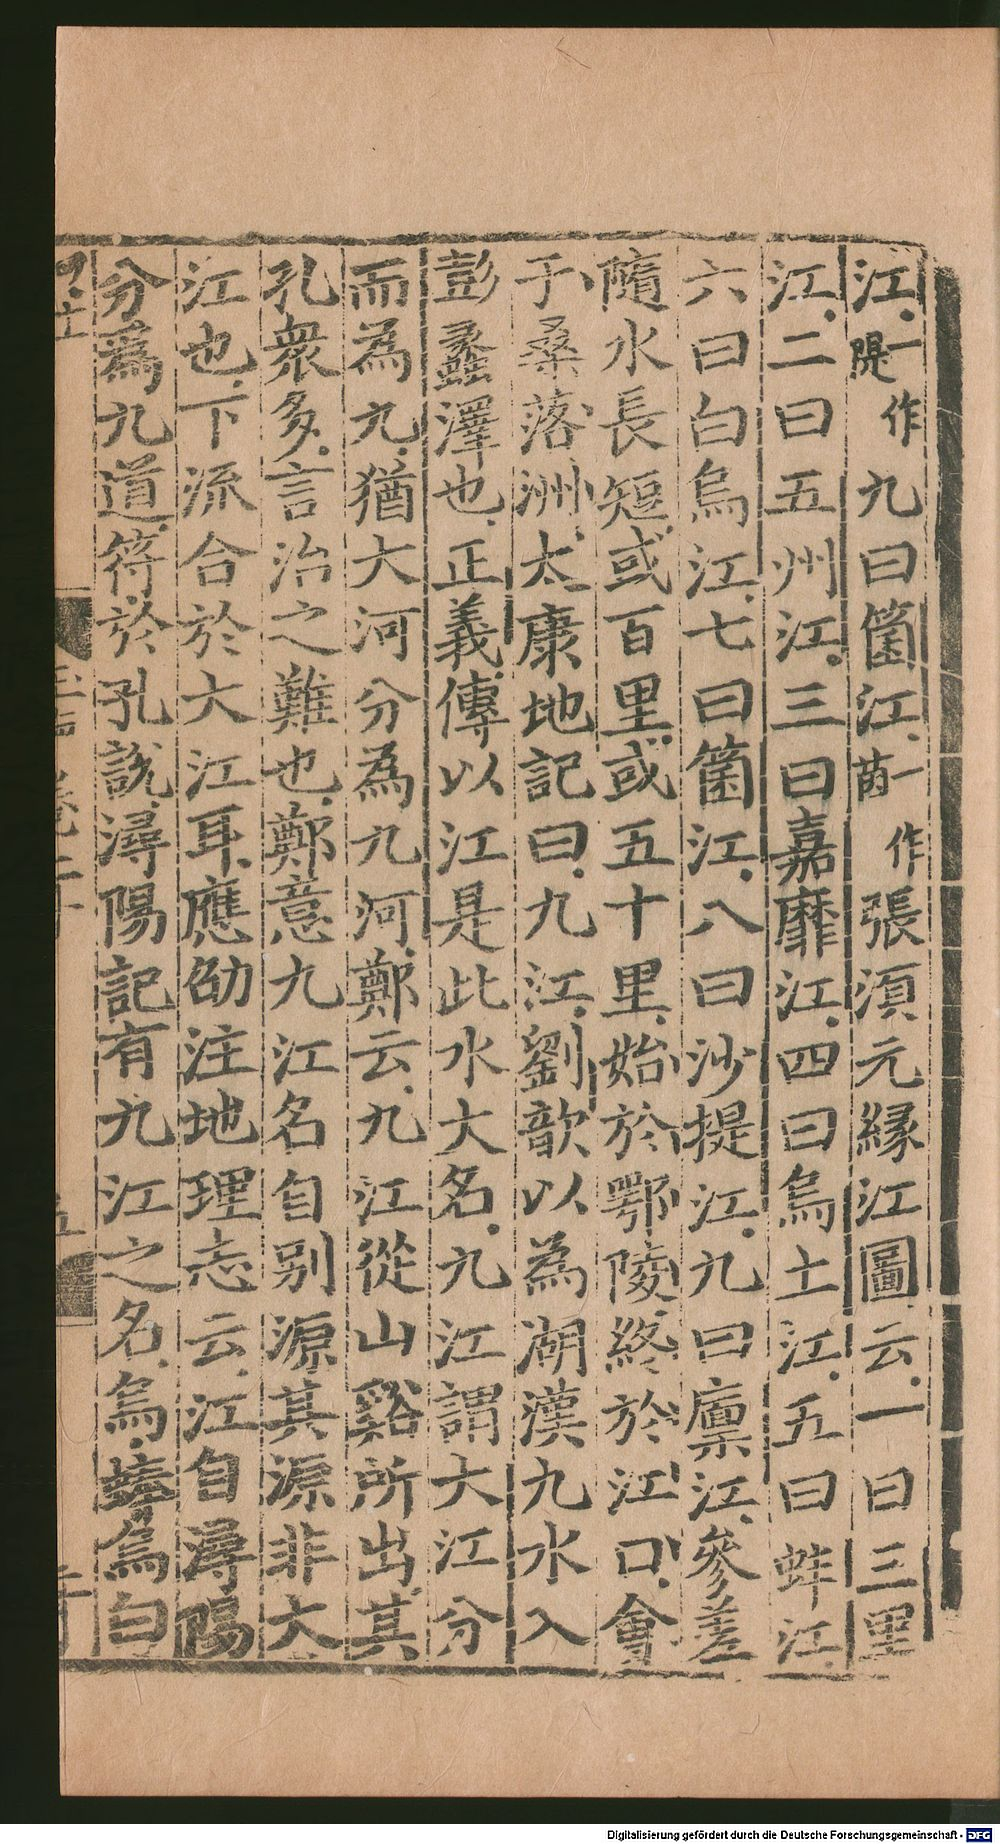 江一作隄九曰箘江一作茵張湏元縁江圖云一曰三里
江二曰五州江三曰嘉靡江四曰烏土江五曰蚌江
六曰白烏江七曰箘江八曰沙提江九曰廪江參差
隋水長短或百里或五十里始於鄂陵終於江口會
于桑落洲太康地記曰九江劉歆以為湖漢九水入
彭蠡澤也正義傳以江是此水大名九江謂大江分
而為九猶大河分為九河鄭云九江從山谿所出其
孔衆多言治之難也鄭意九江名自别源其源非大
江也下流合於大江耳應劭注地理志云江自潯陽
分為九道符於孔說潯陽記有九江之名烏蜯烏白
Digitalisierung gefördert durch die Deutsche Forschungsgemeinschaft - DFG